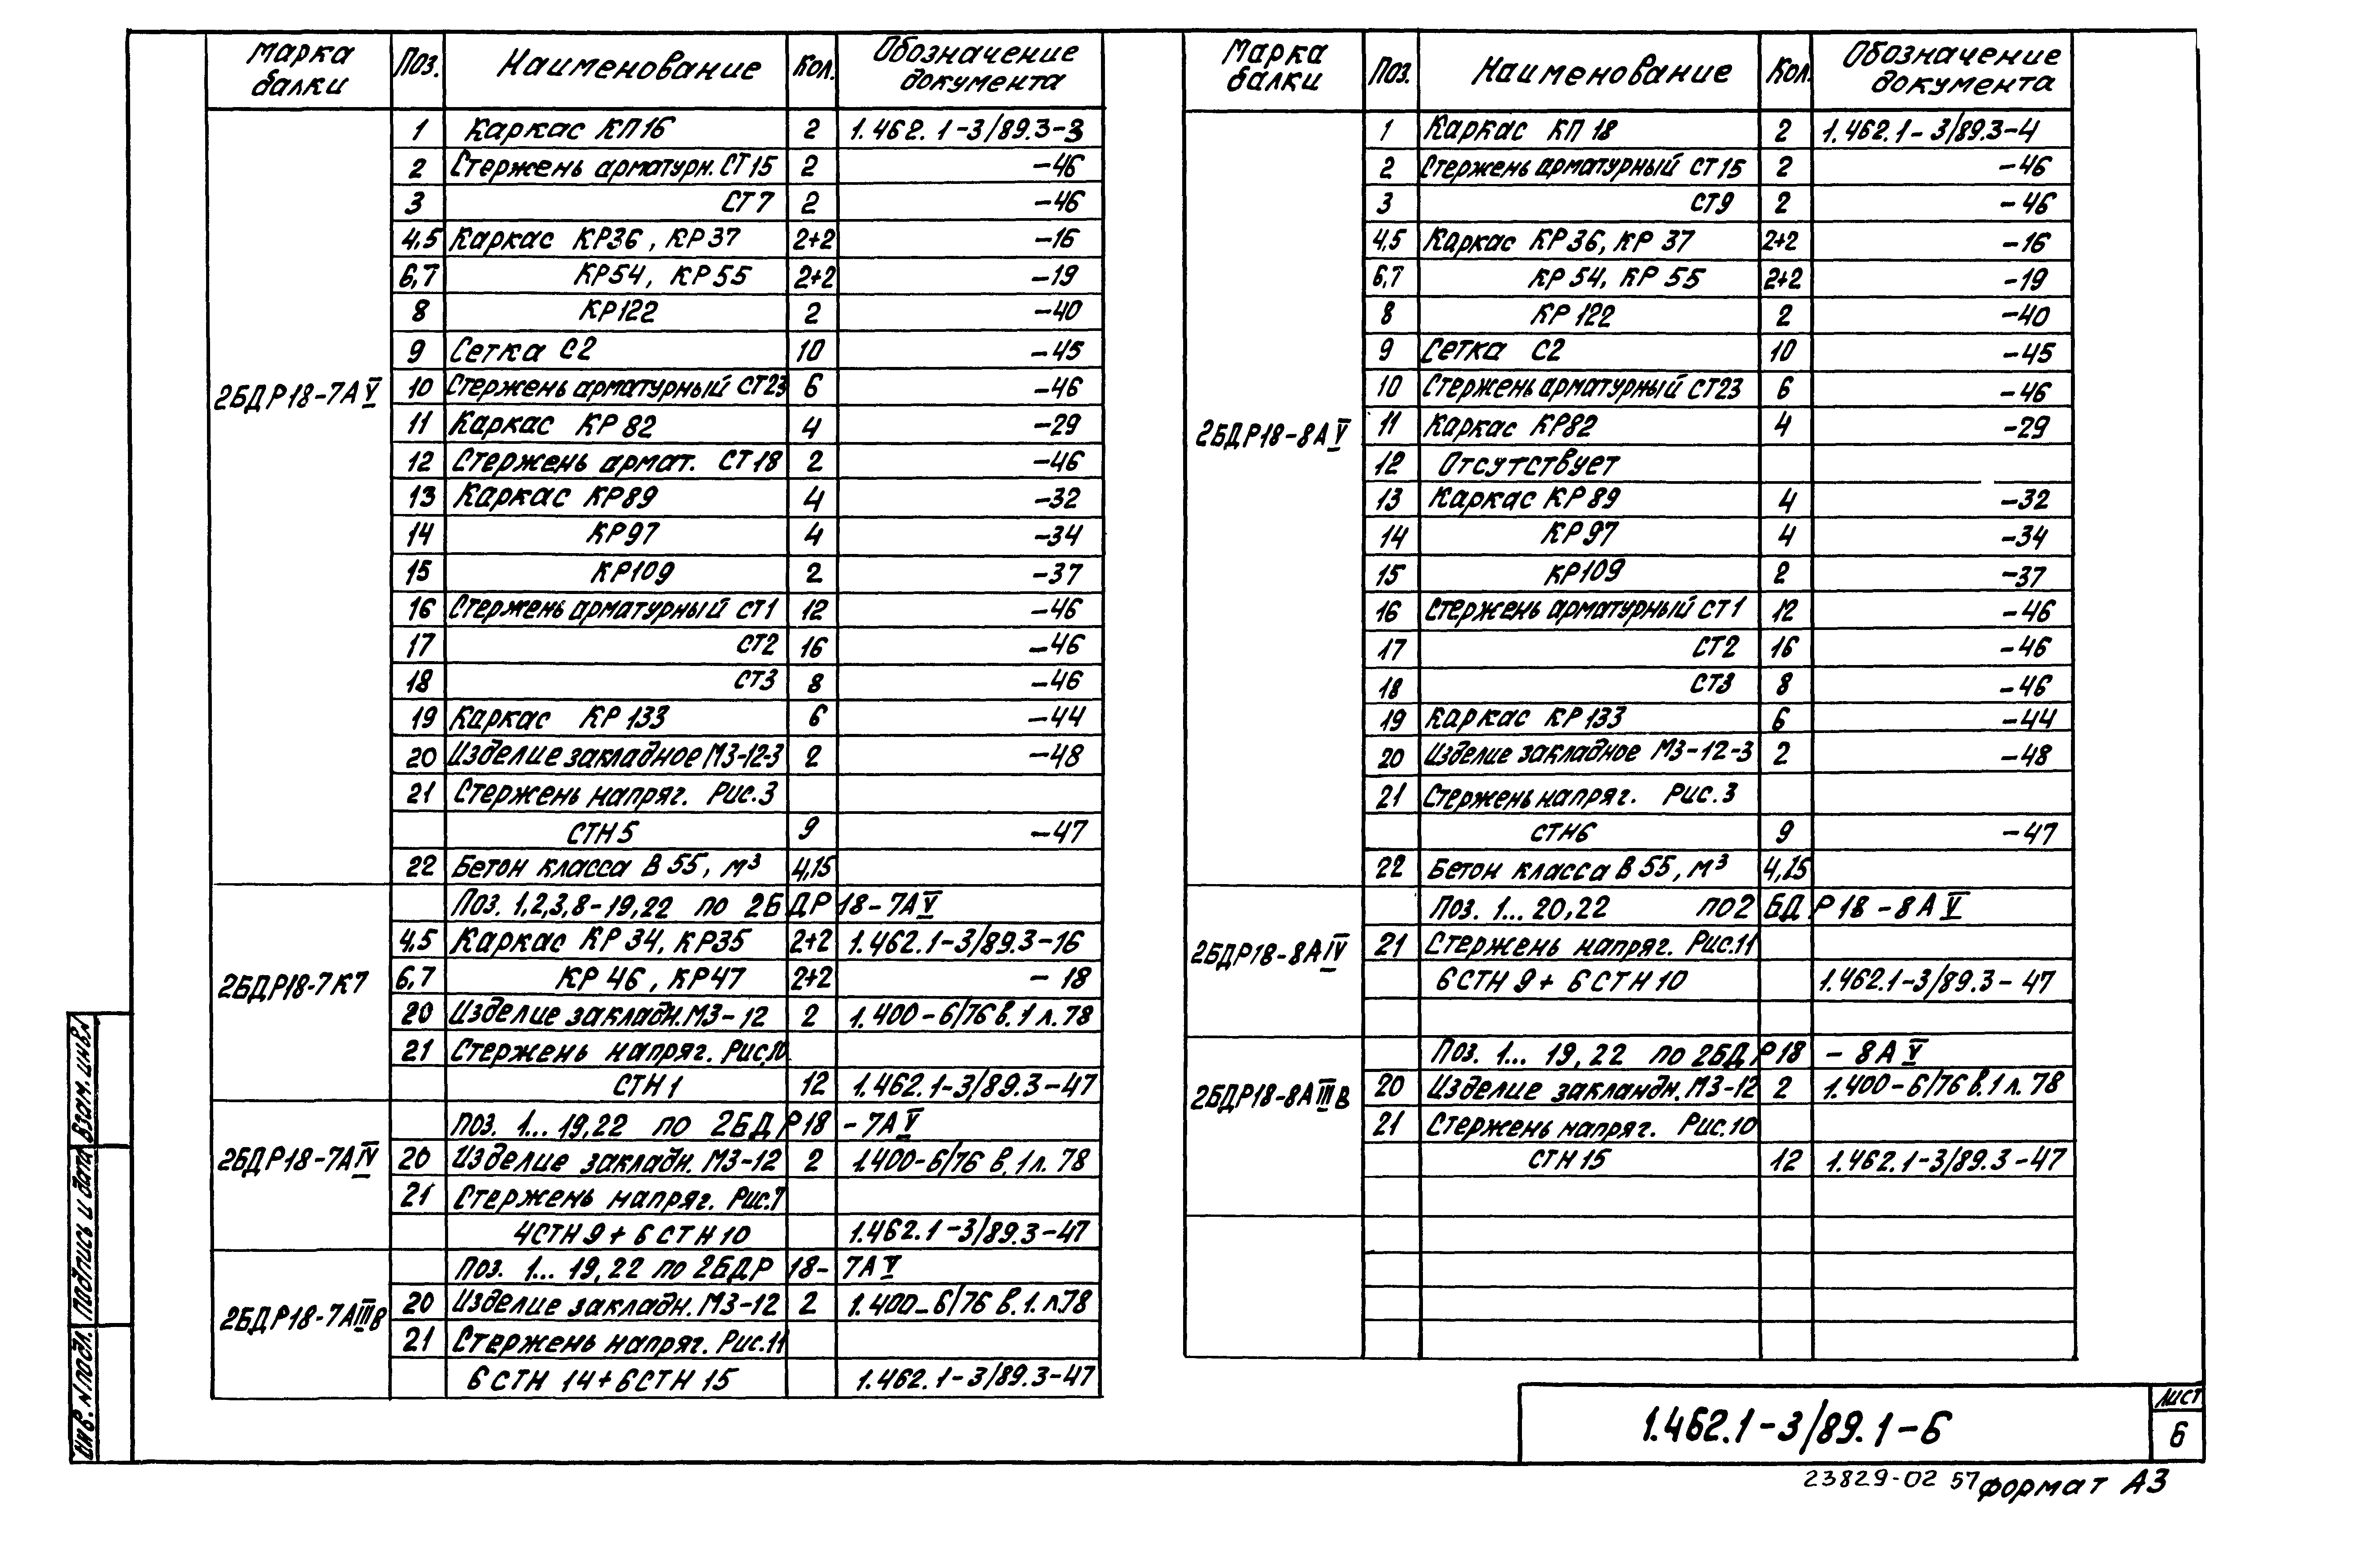 Марка балки Поз. Наименование Кол. Обозначение документа
2БДР18-7АV
1 Каркас КП16 2 1.462.1-3/89.3-3
2 Стержень арматурн. СТ15 2 -46
3 СТ7 2 -46
4,5 Каркас КР36, КР37 2+2 -16
6,7 КР54, КР55 2+2 -19
8 КР122 2 -40
9 Сетка С2 10 -45
10 Стержень арматурный СТ23 6 -46
11 Каркас КР82 4 -29
12 Стержень армат. СТ18 2 -46
13 Каркас КР89 4 -32
14 КР97 4 -34
15 КР109 2 -37
16 Стержень арматурный СТ1 12 -46
17 СТ2 16 -46
18 СТ3 8 -46
19 Каркас КР133 6 -44
20 Изделие закладное МЗ-12-3 2 -48
21 Стержень напряг. Рис.3
СТН5 9 -47
22 Бетон класса В55, м³ 4,15
2БДР18-7К7
Поз. 1,2,3,8-19,22 по 2БДР18-7АV
4,5 Каркас КР34, КР35 2+2 1.462.1-3/89.3-16
6,7 КР46, КР47 2+2 -18
20 Изделие закладн. МЗ-12 2 1.400-6/76 в.1 л.78
21 Стержень напряг. Рис.10
СТН1 12 1.462.1-3/89.3-47
2БДР18-7АIV
Поз. 1...19,22 по 2БДР18-7АV
20 Изделие закладн. МЗ-12 2 1.400-6/76 в.1 л.78
21 Стержень напряг. Рис.7
4СТН9+6СТН10 1.462.1-3/89.3-47
2БДР18-7АIIIв
Поз. 1...19,22 по 2БДР18-7АV
20 Изделие закладн. МЗ-12 2 1.400-6/76 в.1.л.78
21 Стержень напряг. Рис.11
6СТН14+6СТН15 1.462.1-3/89.3-47
Марка балки Поз. Наименование Кол. Обозначение документа
2БДР18-8АV
1 Каркас КП18 2 1.462.1-3/89.3-4
2 Стержень арматурный СТ15 2 -46
3 СТ9 2 -46
4,5 Каркас КР36, КР37 2+2 -16
6,7 КР54, КР55 2+2 -19
8 КР122 2 -40
9 Сетка С2 10 -45
10 Стержень арматурный СТ23 6 -46
11 Каркас КР82 4 -29
12 Отсутствует
13 Каркас КР89 4 -32
14 КР97 4 -34
15 КР109 2 -37
16 Стержень арматурный СТ1 12 -46
17 СТ2 16 -46
18 СТ3 8 -46
19 Каркас КР133 6 -44
20 Изделие закладное МЗ-12-3 2 -48
21 Стержень напряг. Рис.3
СТН6 9 -47
22 Бетон класса В55, м³ 4,15
2БДР18-8АIV
Поз. 1...20,22 по 2БДР18-8АV
21 Стержень напряг. Рис.11
6СТН9+6СТН10 1.462.1-3/89.3-47
2БДР18-8АIIIв
Поз. 1...19,22 по 2БДР18-8АV
20 Изделие закландн. МЗ-12 2 1.400-6/76 в.1 л.78
21 Стержень напряг. Рис.10
СТН15 12 1.462.1-3/89.3-47
Инв. N подл. Подпись и дата Взам. инв. N
1.462.1-3/89.1-6
Лист
6
23829-02 57
формат А3